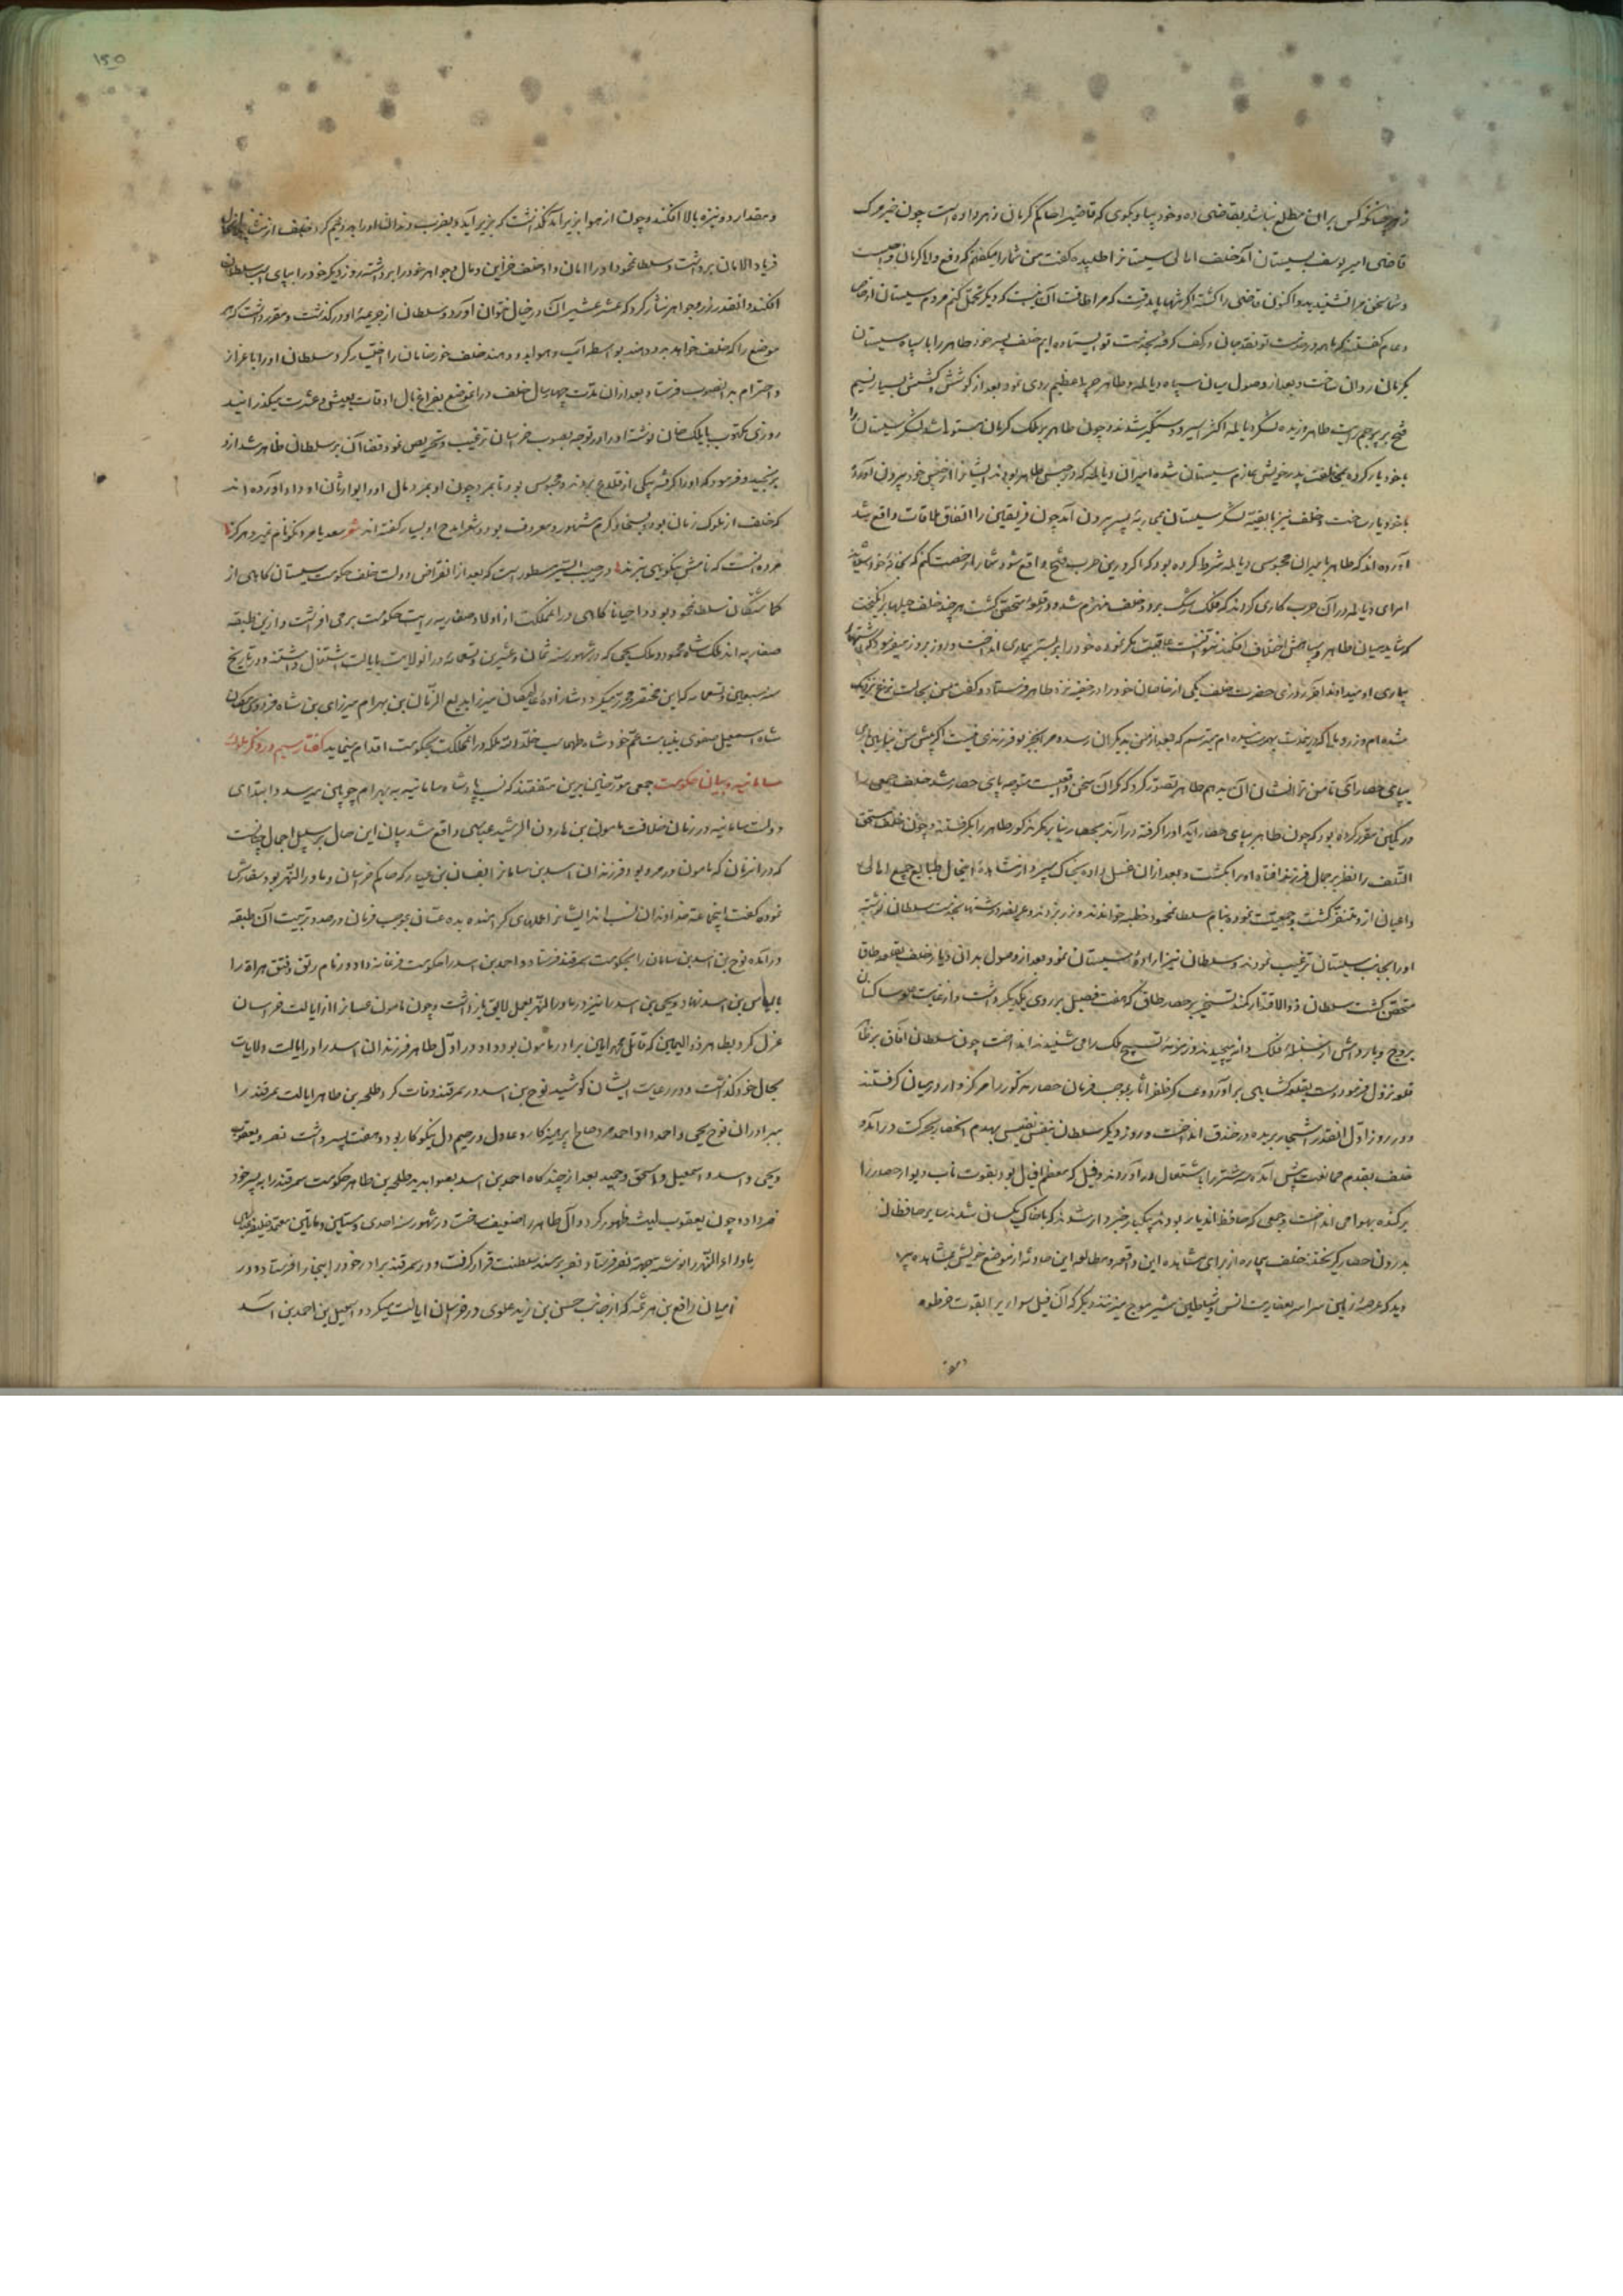 زهر چنانکه کس بران مطلع نباشد بقاضی ده و خود بیا و بکوی که قاضیرا حاکم کرمان زهر داده است چون خبر مرک
قاضی امیر یوسف بسیستان آمد خلف اهالی سیستانرا طلبیده گفت من شمارا میکفتم که دفع والی کرمان واجبست
و شما سخن مرا نشنیدید و اکنون قاضی را کشته اکر شهر باید رفت که مرا طاقت آن نیست که دیکر تحمل کنم مردم سیستان از خاص
و عام گفتند که ما همه در خدمت تو نقد جان در کف گرفته بخدمت تو ایستاده ایم خلف پسر خود طاهر را با سپاه سیستان
بکرمان روان ساخت و بعد از وصول میان سپاه دیالمه و طاهر حربی عظیم روی نمود بعد از کوشش و کشش بسیار نسیم
فتح بر پرچم رایت طاهر وزیده لشکر دیالمه اکثر اسیر و دستکیر شدند و چون طاهر بر ملک کرمان مستولی شد لشکر سیستان را
با خود یار کرده بمخالفت پدر خویش عازم سیستان شده امیران دیالمه که در حبس طاهر بودند ایشانرا از حبس خود بیرون آورده
با خود یار ساخت و خلف نیز با بقیه لشکر سیستان بمحاربه پسر بیرون آمد چون فریقین را اتفاق ملاقات واقع شد
آورده اند که طاهر با میران محبوس دیالمه شرط کرده بود که اکر درین حرب فتح واقع شود شما را رخصت کنم که
امرای دیالمه دران حرب کاری کردند که فلک رشک برد و خلف منهزم شده در قلعه متحصن کشت هر چند خلف حیلها برانکیخت
که شاید میان طاهر و سپاهش اختلاف افکند نتوانست عاقبت مکر نموده خود را بر بستر بیماری انداخت و روز بروز
بیماری او میدادند آخر روزی حضرت خلف یکی از خاصان خود را در خفیه نزد طاهر فرستاد و گفت من بحالت نزع نزدیک
شده ام و زر و مالی که در مدت بهم رسانیده ام میترسم که بعد از من بدیکران رسد و مرا بجز تو فرزندی نیست اکر پیش من
بپای حصار آی تا من ترا نشان آن بدهم طاهر تصور کرد که مکر آن سخن واقعیست متوجه پای حصار شد خلف جمعی را
در کمین مقرر کرده بود که چون طاهر بپای حصار آید او را گرفته درآرند بحصار بنابر مکر مذکور طاهر را بکرفتند و چون خلف مستحق
التلف را نظر بر جمال فرزند افتاد او را بکشت و بعد ازان غسل داده بخاک سپرد از مشاهده اینحال طبایع جمیع اهالی
و اعیان ازو متنفر کشت و جمعیت نموده بنام سلطانمحمود خطبه خواندند و زر بزدند و عریضه داشتها بخدمت سلطان نوشته
او را بجانب سیستان ترغیب نمودند و سلطان نیز اراده سیستان نمود بعد از وصول بدان دیار خلف بقلعه طاق
متحصن کشت سلطان ذوالاقتدار کمند تسخیر بر حصار طاق که هفت فصیل بر روی یکدیکر داشت و از غایت علو ساکنان
بروج و باره اش از غلغله فلک دانه میچیدند و زمزمه تسبیح ملک را می شنیدند انداخت چون سلطان آفاق بر ظاهر
قلعه نزول فرمود دست بقلعه کشایی برآورده عساکر ظفر آثار بموجب فرمان حصار مذکور را مرکزوار در میان گرفتند
و در روز اول آنقدر اشجار بریده در خندق انداخت و روز دیکر سلطان بنفس نفیس بهدم الحصار بحرکت درآمد و
خلف بقدم ممانعت پیش آمد آتش را باشتعال درآوردند و فیل که معظم افیال بود بقوت ناب دیوار حصار را
برکنده بهوا می انداخت و جمعی که محافظ اندیار بودند بیکبار خبردار شدند که با خاک یکسان شدند سایر محافظان
بدرون حصار گریختند خلف بیچاره از برای مشاهده این واقعه و مطالعه این حادثه از موضع خویش بمشاهده
دید که عرصه زمین سراسر بعفاریت انس و شیاطین بشر موج میزند و دیکر که آن فیل سوار را بقوت خرطوم
۱۵۰
و بمقدار دو نیزه بالا افکند و چون از هوا بزیر آمد نگذاشت که بزیر آید و بضرب دندان او را بدو نیم کرد خلف از مشاهده
فریاد الامان برداشت و سلطانمحمود او را امان داد خلف خزاین و مال و جواهر خود را برداشته روز دیکر خود را بپای اسب سلطان
افکند و آنقدر زر و جواهر نثار کرد که عشر عشیر آن در خیال نتوان آورد و سلطان از جریمه او درگذشت و مقرر داشت که هر
موضع را که خلف خواهد بدو دهند بواسطه آب و هوا بدو دهند خلف خورضامان را اختیار کرد سلطان او را باعزاز
و احترام بدانصوب فرستاد بعد ازان مدت چهار سال خلف در انموضع بفراغ بال اوقات بعیش و عشرت میگذرانید
روزی مکتوب بایلک خان نوشته او را در توجه بصوب خراسان ترغیب و تحریص نمود قضا آن بر سلطان ظاهر شد ازو
برنجید و فرمود که او را گرفته بیکی از قلاع بردند و محبوس بود تا بمرد چون او بمرد مال او را بوارثان او داد آورده اند
که خلف از ملوک زمان بود و بسخا و کرم مشهور و معروف بود و شعرا مدح او بسیار گفته اند شعر سعدیا مرد نکونام نمیرد هرگز
مرده آنست که نامش بنکویی نبرند در حبیب السیر مسطورست که بعد از انقراض دولت خلف حکومت سیستان گاهی از
گماشتکان سلطانمحمود بود و احیانا گاهی در انمملکت از اولاد صفاریه رایت حکومت برمی افراشت و ازین طبقه
صفاریه اند ملک شاه محمود و ملک یحیی که در شهور سنه ثمان و عشرین و تسعمائه در انولایت بایالت اشتغال داشتند و در تاریخ
سنه سبعین و تسعمایه که این مختصر محرر میکردد شاهزاده عالمیان میرزا بدیع الزمان بن بهرام میرزای بن شاه فردوس مکان
شاه اسمعیل صفوی بنیابت عم خود شاه طهماسب خلد الله ملکه در انمملکت بحکومت اقدام مینماید گفتار سیم در ذکر ملوک
سامانیه و بیان حکومت جمعی مورخین برین متفقند که نسب پادشاه سامانیه به بهرام چوبین میرسد و ابتدای
دولت سامانیه در زمان خلافت مامون بن هارون الرشید عباسی واقع شد بیان این حال بر سبیل اجمال چنانست
که در انزمان که مامون در مرو بود فرزندان اسد بن سامانرا بغسان بن عباد که حاکم خراسان و ماورالنهر بود سفارش
نموده گفت اینجماعت خداوندان نسب اند ایشانرا عملهای گرانمند بده غسان بموجب فرمان در صدد تربیت آن طبقه
درآمده نوح بن اسد بن سامان را بحکومت سمرقند فرستاد و احمد بن اسد را حکومت فرغانه داد و زمام رتق و فتق هراة را
بالیاس بن اسد نهاد و یحیی بن اسد را نیز در ماورالنهر بعمل لایق بازداشت و چون مامون غسانرا از ایالت خراسان
عزل کرد بطاهر ذوالیمینین که قاتل محمد امین برادر مامون بود داد و در اول طاهر فرزندان اسد را در ایالت ولایات
بحال خود گذاشت و در رعایت ایشان کوشید نوح بن اسد در سمرقند وفات کرد طلحه بن طاهر ایالت سمرقند را
ببرادران نوح یحیی و احمد داد احمد مرد صالح پرهیزکار و عادل و رحیم دل نیکو کار بود و هفت پسر داشت نصر و یعقوب
و یحیی و اسد و اسمعیل و اسحق و حمید بعد از چند گاه احمد بن اسد بصوابدید طلحه بن طاهر حکومت سمرقند را به پسر خود
نصر داده چون یعقوب لیث ظهور کرد و آل طاهر را ضعیف ساخت در شهور سنه احدی و ستین و مأتین معتمد خلیفه
ماوراءالنهر را نوشته بجهة نصر فرستاد نصر بر مسند سلطنت قرار گرفت و در سمرقند برادر خود را ببخارا فرستاد و در
آمیان رافع بن هرثمه که از جانب حسن بن زید علوی در خراسان ایالت میکرد و اسمعیل بن احمد بن اسد